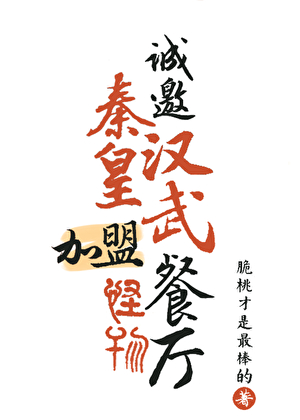 诚邀
秦皇汉武
加盟
怪物
餐厅
脆桃才是最棒的 著